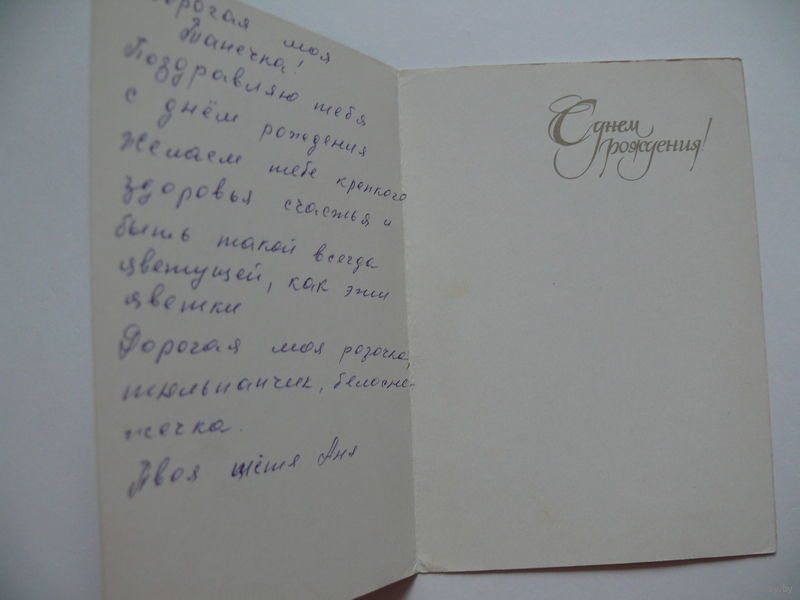 Дорогая моя
Танечка!
Поздравляю тебя
с днём рождения
Желаем тебе крепкого
здоровья счастья и
быть такой всегда
цветущей, как эти
цветки
Дорогая моя розочка,
тюльпанчик, белосне-
жечка.
Твоя тётя Аня
С днем
рождения!